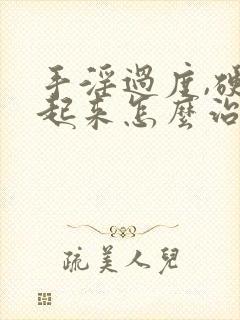 手淫過度,硬
起来怎麼治
疏美人兒